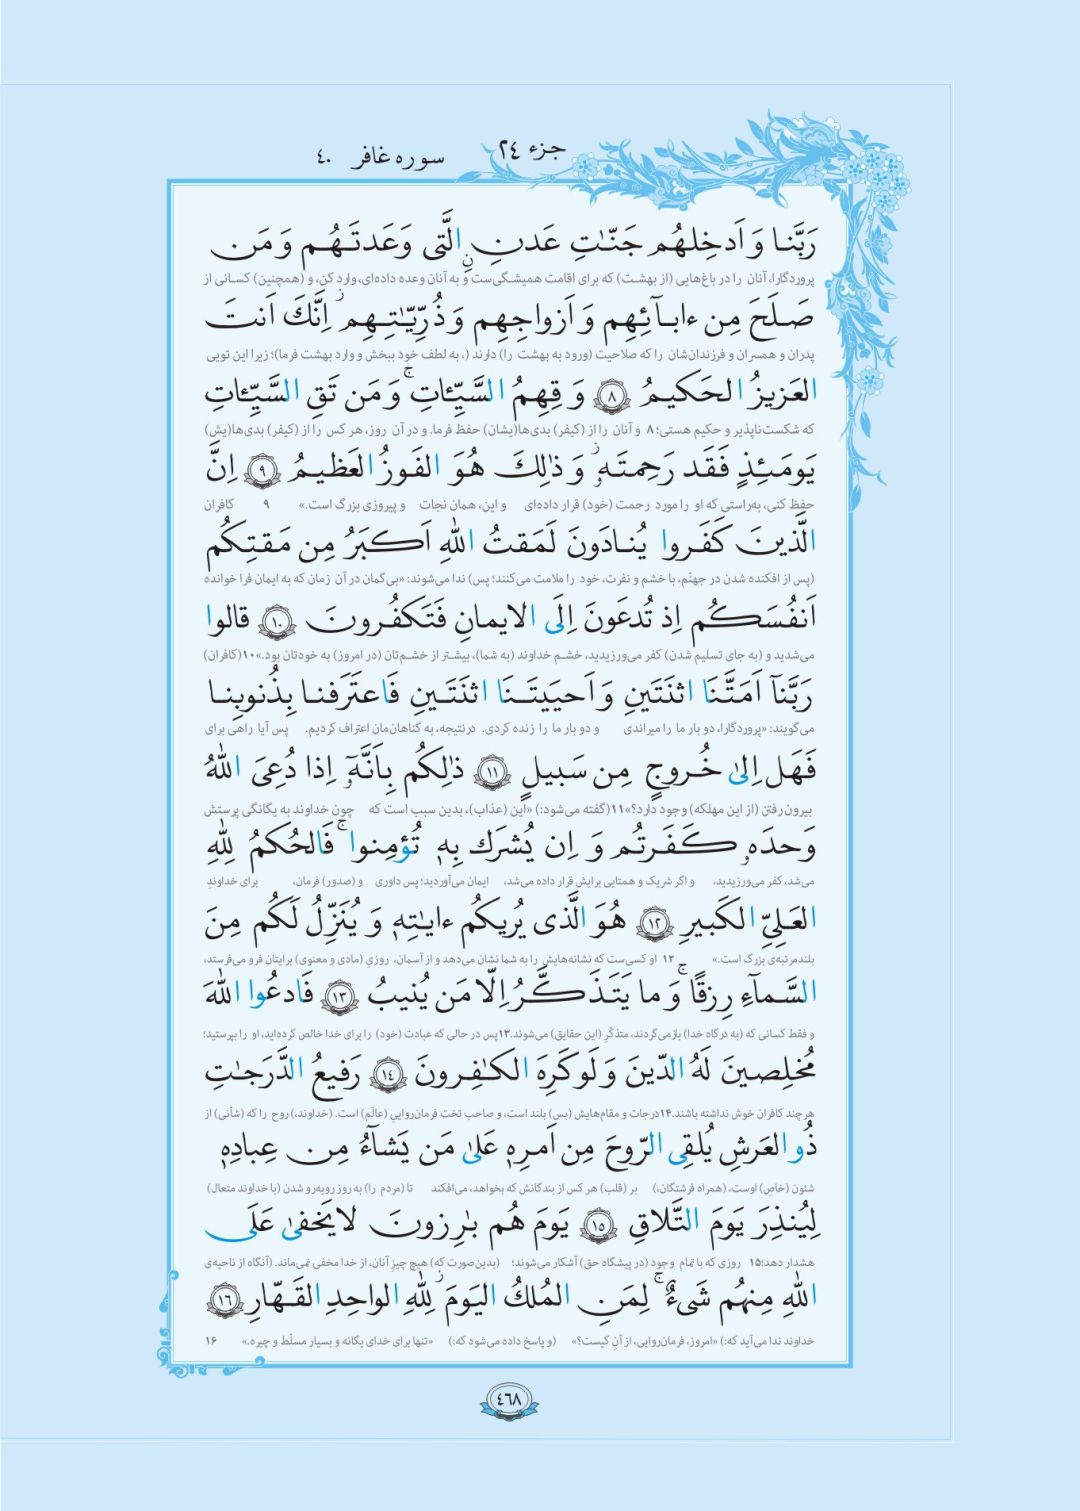 جزء ٢٤
سوره غافر ٤٠
رَبَّنا وَ اَدخِلهُم جَنّٰتِ عَدنٍ الَّتی وَعَدتَهُم وَ مَن
پروردگارا، آنان را در باغ‌هایی (از بهشت) که برای اقامت همیشگی‌ست و به آنان وعده داده‌ای، وارد کن، و (همچنین) کسانی از
صَلَحَ مِن ءابآئِهِم وَ اَزواجِهِم وَ ذُرِّیّٰتِهِم ۚ اِنَّكَ اَنتَ
پدران و همسران و فرزندان‌شان را که صلاحیت (ورود به بهشت را) دارند (، به لطف خود ببخش و وارد بهشت فرما)؛ زیرا این تویی
العَزیزُ الحَکیمُ ﴿٨﴾ وَ قِهِمُ السَّیِّئاتِ ۚ وَ مَن تَقِ السَّیِّئاتِ
که شکست‌ناپذیر و حکیم هستی؛ ۸ و آنان را از (کیفر) بدی‌ها(یشان) حفظ فرما. و در آن روز، هر کس را از (کیفر) بدی‌ها(یش)
یَومَئِذٍ فَقَد رَحِمتَهٗ ۚ وَ ذٰلِكَ هُوَ الفَوزُ العَظیمُ ﴿٩﴾ اِنَّ
حفظ کنی، به‌راستی که او را مورد رحمت (خود) قرار داده‌ای و این، همان نجات و پیروزی بزرگ است.» ۹ کافران
الَّذینَ کَفَروا یُنادَونَ لَمَقتُ اللّٰهِ اَکبَرُ مِن مَقتِکُم
(پس از افکنده شدن در جهنّم، با خشم و نفرت، خود را ملامت می‌کنند؛ پس) ندا می‌شوند: «بی‌گمان در آن زمان که به ایمان فرا خوانده
اَنفُسَکُم اِذ تُدعَونَ اِلَی الایمانِ فَتَکفُرونَ ﴿١٠﴾ قالوا
می‌شدید و (به جای تسلیم شدن) کفر می‌ورزیدید، خشم خداوند (به شما)، بیشتر از خشم‌تان (در امروز) به خودتان بود.» ۱۰ (کافران)
رَبَّنآ اَمَتَّنَا اثنَتَینِ وَ اَحیَیتَنَا اثنَتَینِ فَاعتَرَفنا بِذُنوبِنا
می‌گویند: «پروردگارا، دو بار ما را میراندی و دو بار ما را زنده کردی. درنتیجه، به گناهان‌مان اعتراف کردیم. پس آیا راهی برای
فَهَل اِلیٰ خُروجٍ مِن سَبیلٍ ﴿١١﴾ ذٰلِکُم بِاَنَّهٗٓ اِذا دُعِیَ اللّٰهُ
بیرون رفتن (از این مهلکه) وجود دارد؟» ۱۱ (گفته می‌شود:) «این (عذاب)، بدین سبب است که چون خداوند به یگانگی پرستش
وَحدَهٗ کَفَرتُم وَ اِن یُشرَك بِهٖ تُؤمِنوا ۚ فَالحُکمُ لِلّٰهِ
می‌شد، کفر می‌ورزیدید، و اگر شریک و همتایی برایش قرار داده می‌شد، ایمان می‌آوردید؛ پس داوری و (صدور) فرمان، برای خداوندِ
العَلِیِّ الکَبیرِ ﴿١٢﴾ هُوَ الَّذی یُریکُم ءایٰتِهٖ وَ یُنَزِّلُ لَکُم مِنَ
بلندمرتبه‌ی بزرگ است.» ۱۲ او کسی‌ست که نشانه‌هایش را به شما نشان می‌دهد و از آسمان، روزیِ (مادی و معنوی) برایتان فرو می‌فرستد،
السَّمآءِ رِزقًا ۚ وَ ما یَتَذَکَّرُ اِلّا مَن یُنیبُ ﴿١٣﴾ فَادعُوا اللّٰهَ
و فقط کسانی که (به درگاه خدا) بازمی‌گردند، متذکّرِ (این حقایق) می‌شوند. ۱۳ پس در حالی که عبادت (خود) را برای خدا خالص کرده‌اید، او را بپرستید؛
مُخلِصینَ لَهُ الدّینَ وَ لَو کَرِهَ الکٰفِرونَ ﴿١٤﴾ رَفیعُ الدَّرَجٰتِ
هرچند کافران خوش نداشته باشند. ۱۴ درجات و مقام‌هایش (بس) بلند است، و صاحب تخت فرمان‌رواییِ (عالَم) است. (خداوند،) روح را که (شأنی) از
ذُو العَرشِ یُلقِی الرّوحَ مِن اَمرِهٖ عَلیٰ مَن یَشآءُ مِن عِبادِهٖ
شئون (خاصِ) اوست، (همراه فرشتگان،) بر (قلب) هر کس از بندگانش که بخواهد، می‌افکند تا (مردم را) به روز روبه‌رو شدن (با خداوند متعال)
لِیُنذِرَ یَومَ التَّلاقِ ﴿١٥﴾ یَومَ هُم بٰرِزونَ لا یَخفیٰ عَلَی
هشدار دهد؛ ۱۵ روزی که با تمام وجود (در پیشگاه حق) آشکار می‌شوند؛ (بدین‌صورت که) هیچ چیزِ آنان، از خدا مخفی نمی‌ماند. (آنگاه از ناحیه‌ی
اللّٰهِ مِنهُم شَیءٌ ۚ لِمَنِ المُلكُ الیَومَ ۖ لِلّٰهِ الواحِدِ القَهّارِ ﴿١٦﴾
خداوند ندا می‌آید که:) «امروز، فرمان‌روایی، از آنِ کیست؟» (و پاسخ داده می‌شود که:) «تنها برای خدای یگانه و بسیار مسلّط و چیره.» ۱۶
٤٦٨